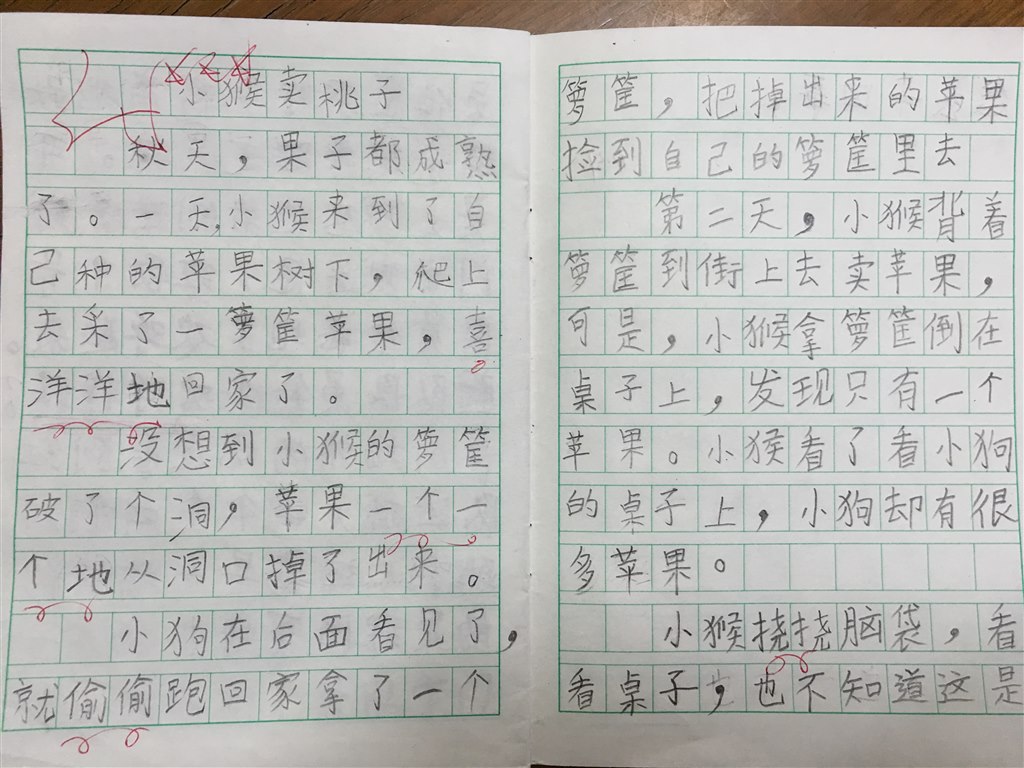 小猴卖桃子
秋天，果子都成熟
了。一天，小猴来到了自
己种的苹果树下，爬上
去采了一箩筐苹果，喜
洋洋地回家了。
没想到小猴的箩筐
破了个洞，苹果一个一
个地从洞口掉了出来。
小狗在后面看见了，
就偷偷跑回家拿了一个
箩筐，把掉出来的苹果
捡到自己的箩筐里去
第二天，小猴背着
箩筐到街上去卖苹果，
可是，小猴拿箩筐倒在
桌子上，发现只有一个
苹果。小猴看了看小狗
的桌子上，小狗却有很
多苹果。
小猴挠挠脑袋，看
看桌子，也不知道这是